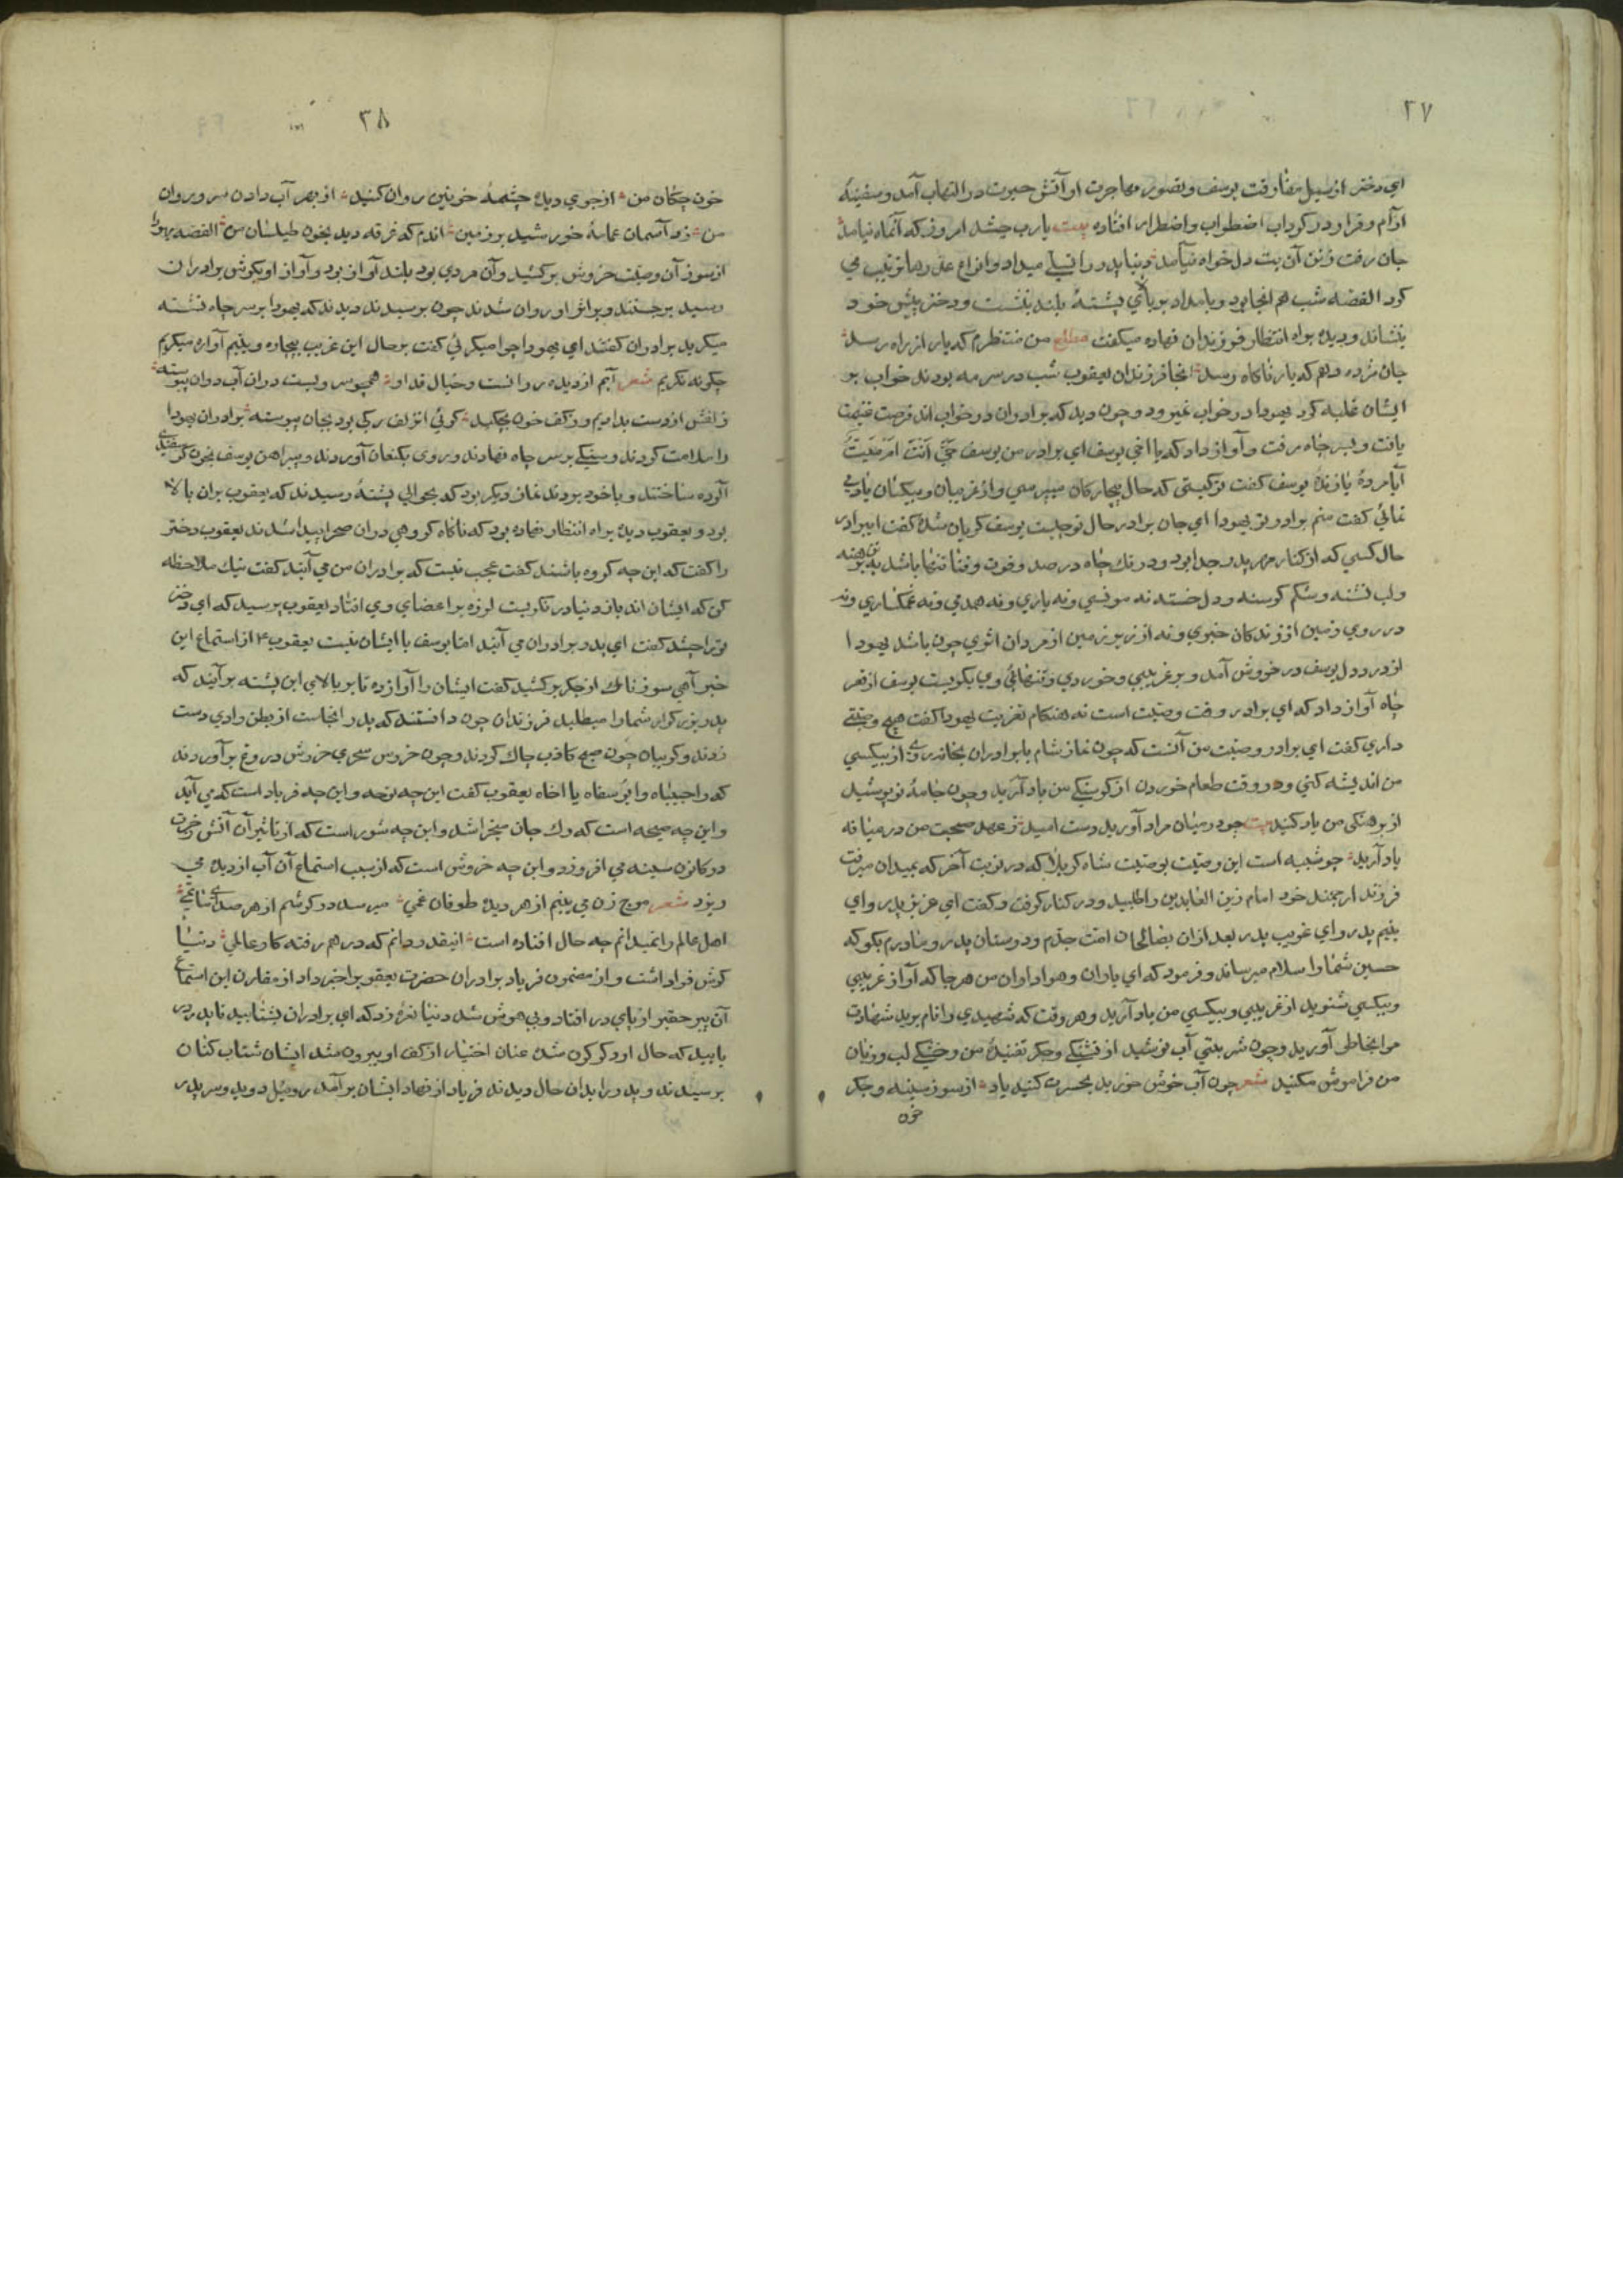 ۲۷
ای دختر از سیل مفارقت یوسف و تصور مهاجرت او آتش حیرت در التهاب آمد و سفینهٔ
آرام و قرار در گرداب اضطراب و اضطرار افتاده بیت یارب چشد امروز که آنماه نیامد
جان رفت و آن بت دل خواه نیامد دنیا پدر را تسلی میداد و انواع عذرها ترتیب می
کرد القصه شب هم آنجا بود و بامداد بر بالای پشتهٔ بلند بنشست و دختر پیش خود
بنشاند و دیده براه انتظار فرزندان نهاده میگفت مطلع من منتظرم که یار از راه رسد
جان مژده دهم که یار ناگاه رسد آنجا فرزندان یعقوب شب در سر مه بودند خواب بر
ایشان غلبه کرد یهودا در خواب نمیرود و چون دید که برادران در خواب اند فرصت غنیمت
یافت و بسر چاه رفت و آواز داد که یا اخی یوسف ای برادر من یوسف حَیٌّ اَنتَ اَم مَیِّتٌ
آیا مردهٔ یا زندهٔ یوسف گفت تو کیستی که حال بیچارگان میپرسی و از غریبان و بیکسان یاد می
نمائی گفت منم برادر تو یهودا ای جان برادر حال تو چیست یوسف گریان شد گفت ای برادر
حال کسی که از کنار مهر پدر جدا بود و در تک چاه در صدد فوت و فنا تنها باشد تن برهنه
و لب تشنه و شکم گرسنه و دل خسته نه مونسی و نه یاری و نه همدمی و نه غمگساری و نه
در روی زمین از زندگان خبری و نه از زیر زمین از مردان اثری چون باشد یهودا
از درد دل یوسف در خروش آمد و بر غریبی و خوردی و تنهائی وی بگریست یوسف از قعر
چاه آواز داد که ای برادر وقت وصیت است نه هنگام تعزیت یهودا گفت هیچ وصیتی
داری گفت ای برادر وصیت من آنست که چون نماز شام با برادران بخانه روی از بیکسی
من اندیشه کنی و در وقت طعام خوردن از گرسنگی من یاد آرید و چون جامهٔ نو پوشید
از برهنگی من یاد کنید بیت چو در میان مراد آورید دست امید ز عهد صحبت من در میانه
یاد آرید چو شبیه است این وصیت بوصیت شاه کربلا که در نوبت آخر که بمیدان میرفت
فرزند ارجمند خود امام زین العابدین را طلبید و در کنار گرفت و گفت ای عزیز پدر و ای
یتیم پدر و ای غریب پدر بعد از آن بصالحان امت جدم و دوستان پدر و مادرم بگو که
حسین شما را سلام میرساند و فرمود که ای یاران و هواداران من هر جا که آواز غریبی
و بیکسی شنوید از غریبی و بیکسی من یاد آرید و هر وقت که شهیدی را نام برید شهادت
مرا بخاطر آورید و چون شربتی آب نوشید از تشنگی و جگر تفتیدهٔ من و خشکی لب و زبان
من فراموش مکنید شعر چون آب خوش خورید بحسرت کنید یاد از سوز سینه و جگر
خون
۳۸
خون چکان من از جوی دیده چشمهٔ خونین روان کنید از بهر آب دادن سرو روان
من زد آسمان عمامهٔ خورشید بر زمین اندم که غرقه دید بخون طیلسان من القصه یهودا
از سوز آن وصیت خروش برکشید و آن مردی بود بلند آواز بود و آواز او بگوش برادران
رسید برجستند و بر اثر او روان شدند چون برسیدند دیدند که یهودا بر سر چاه نشسته
میگرید برادران گفتند ای یهودا چرا میگرئی گفت بر حال این غریب بیچاره و یتیم آواره میگریم
چگونه نگریم شعر آبم از دیده روانست و خیال قد او همچو سرویست در آن آب روان پیوسته
زلفش از دست بدادیم و ز کف خون بچکید گوئی آن زلف رگی بود بجان پیوسته برادران یهودا
را ملامت کردند و سنگی بر سر چاه نهادند و روی بکنعان آوردند و پیراهن یوسف بخون گوسفندی
آلوده ساختند و با خود بردند نماز دیگر بود که بحوالی پشتهٔ رسیدند که یعقوب بران بالا
بود و یعقوب دیده براه انتظار نهاده بود که ناگاه گروهی در ان صحرا پیدا شدند یعقوب دختر
را گفت که این چه گروه باشند گفت عجب نیست که برادران من می آیند گفت نیک ملاحظه
کن که ایشان اند باز دنیا در نگریست لرزه بر اعضای وی افتاد یعقوب پرسید که ای دختر
ترا چشد گفت ای پدر برادران می آیند اما یوسف با ایشان نیست یعقوب ع از استماع این
خبر آهی سوزناک از جگر برکشید گفت ایشان را آواز ده تا بر بالای این پشته برآیند که
پدر بزرگوار شما را میطلبد فرزندان چون دانستند که پدر آنجاست از بطن وادی دست
زدند و گریبان چون صبح کاذب چاک کردند و چون خروس سحری خروش دروغ برآوردند
که وا حبیباه وا یوسفاه یا اخاه یعقوب گفت این چه نوحه و این چه فریاد است که می آید
و این چه صیحه است که رک جان میخراشد و این چه شور است که از تاثیر آن آتش حزن
در کانون سینه می افروزد و این چه خروش است که از سبب استماع آن آب از دیده می
ریزد شعر موج زن می بینم از هر دیده طوفان غمی میرسد در گوشم از هر صدای ماتمی
اهل عالم را نمیدانم چه حال افتاده است اینقدر دانم که در هم رفته کار عالمی دنیا
گوش فرا داشت و از مضمون فریاد برادران حضرت یعقوب را خبر داد از مقارن این استماع
آن پیر حقیر از پای در افتاد و بی هوش شد دنیا نعرهٔ زد که ای برادران بشتابید تا پدر را در
یابید که حال او دگرگون شده عنان اختیار از کف او بیرون شد ایشان شتاب کنان
برسیدند و پدر را بدان حال دیدند فریاد از نهاد ایشان برآمد روبیل دوید و سر پدر